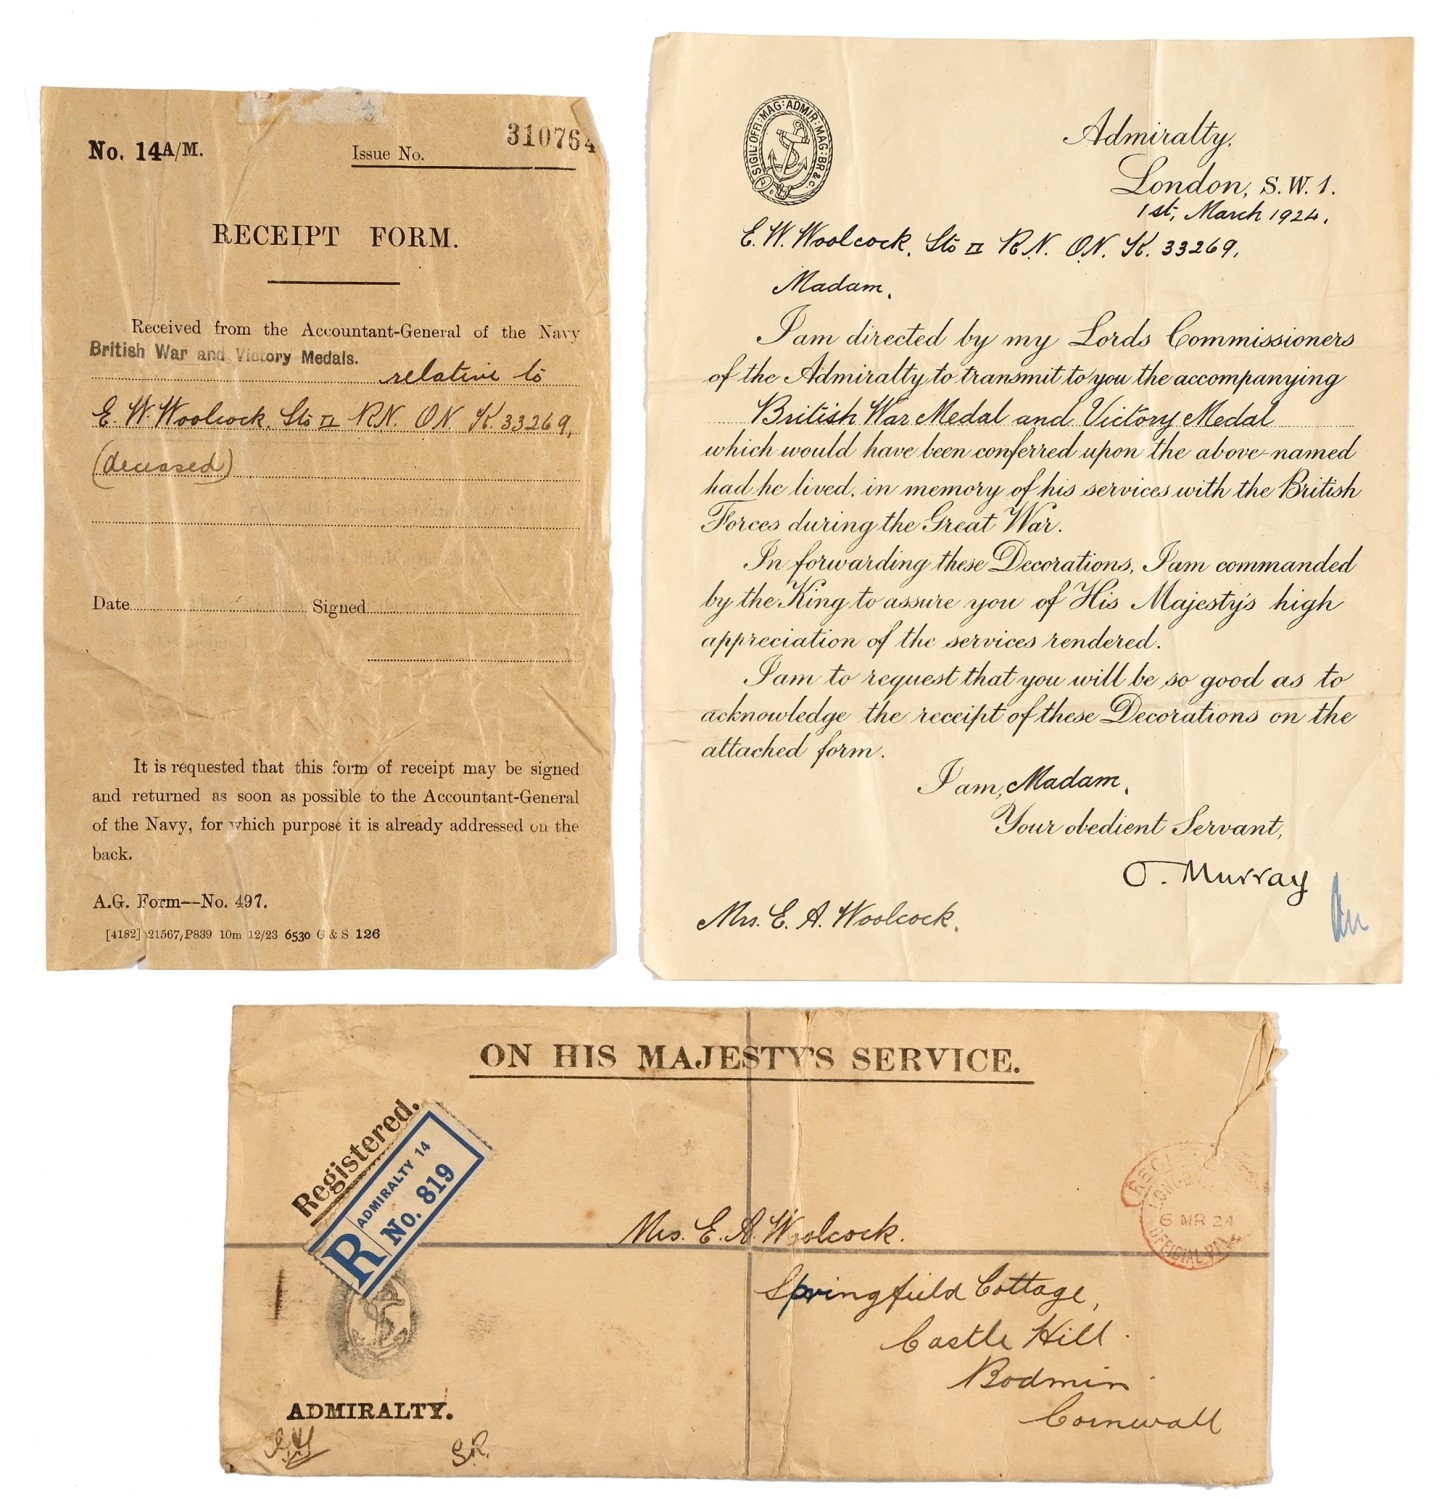 No. 14A/M.
Issue No.
310764
RECEIPT FORM.
Received from the Accountant-General of the Navy
British War and Victory Medals.
relative to
E. W. Woolcock, Sto II R.N. O.N. K. 33269,
(deceased)
Date
Signed
It is requested that this form of receipt may be signed
and returned as soon as possible to the Accountant-General
of the Navy, for which purpose it is already addressed on the
back.
A.G. Form—No. 497.
[4182] 21567/P839 10m 12/23 6530 G & S 126
SIGIL: OFFI: MAG: ADMIR: MAG: BR: &c
Admiralty,
London, S.W. 1.
1st, March 1924,
E. W. Woolcock, Sto II R.N. O.N. K. 33269,
Madam,
I am directed by my Lords Commissioners
of the Admiralty to transmit to you the accompanying
British War Medal and Victory Medal
which would have been conferred upon the above-named
had he lived, in memory of his services with the British
Forces during the Great War.
In forwarding these Decorations, I am commanded
by the King to assure you of His Majesty's high
appreciation of the services rendered.
I am to request that you will be so good as to
acknowledge the receipt of these Decorations on the
attached form.
I am, Madam,
Your obedient Servant,
O. Murray
Mrs. E. A. Woolcock.
ON HIS MAJESTY'S SERVICE.
Registered.
R
ADMIRALTY 14
No. 819
6 MR 24
OFFICIAL
Mrs. E. A. Woolcock.
Springfield Cottage,
Castle Hill
Bodmin
Cornwall
ADMIRALTY.